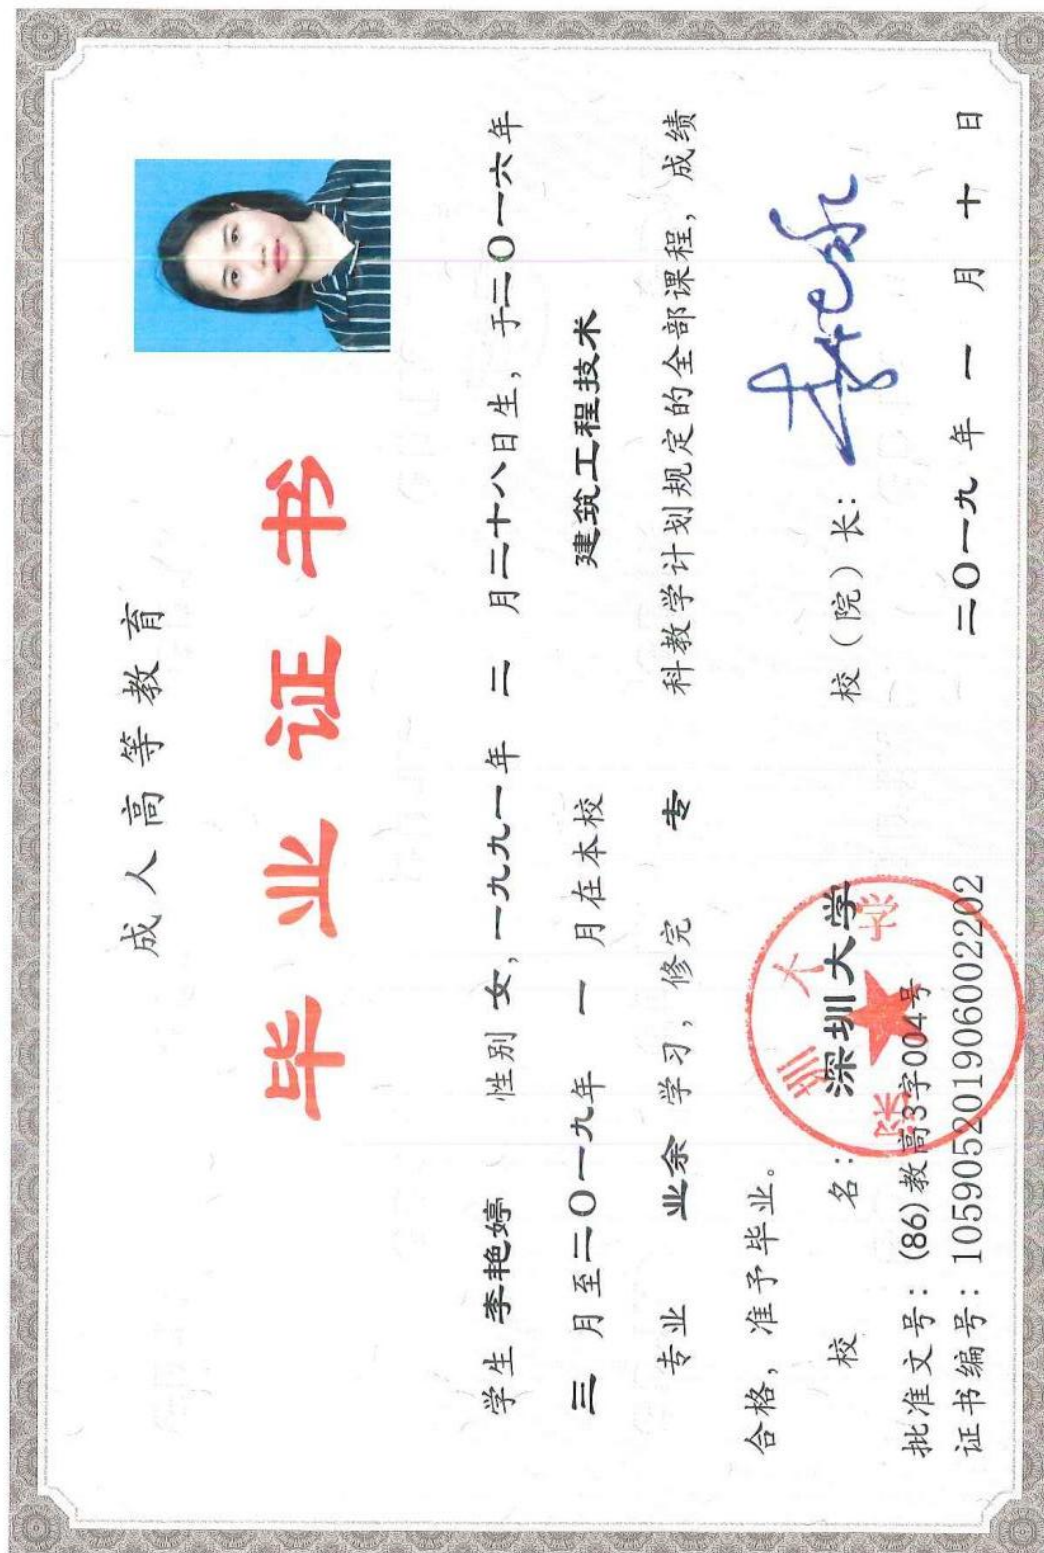 成人高等教育
毕业证书
学生 李艳婷 性别 女，一九九一年 二 月二十八日生，于二〇一六年
三 月至二〇一九年 一 月在本校 建筑工程技术
专业 业余 学习，修完 专 科教学计划规定的全部课程，成绩
合格，准予毕业。
校 名：深圳大学 校（院）长：
深圳大学
批准文号：(86)教高3字004号
证书编号：105905201906002202
二〇一九 年 一 月 十 日